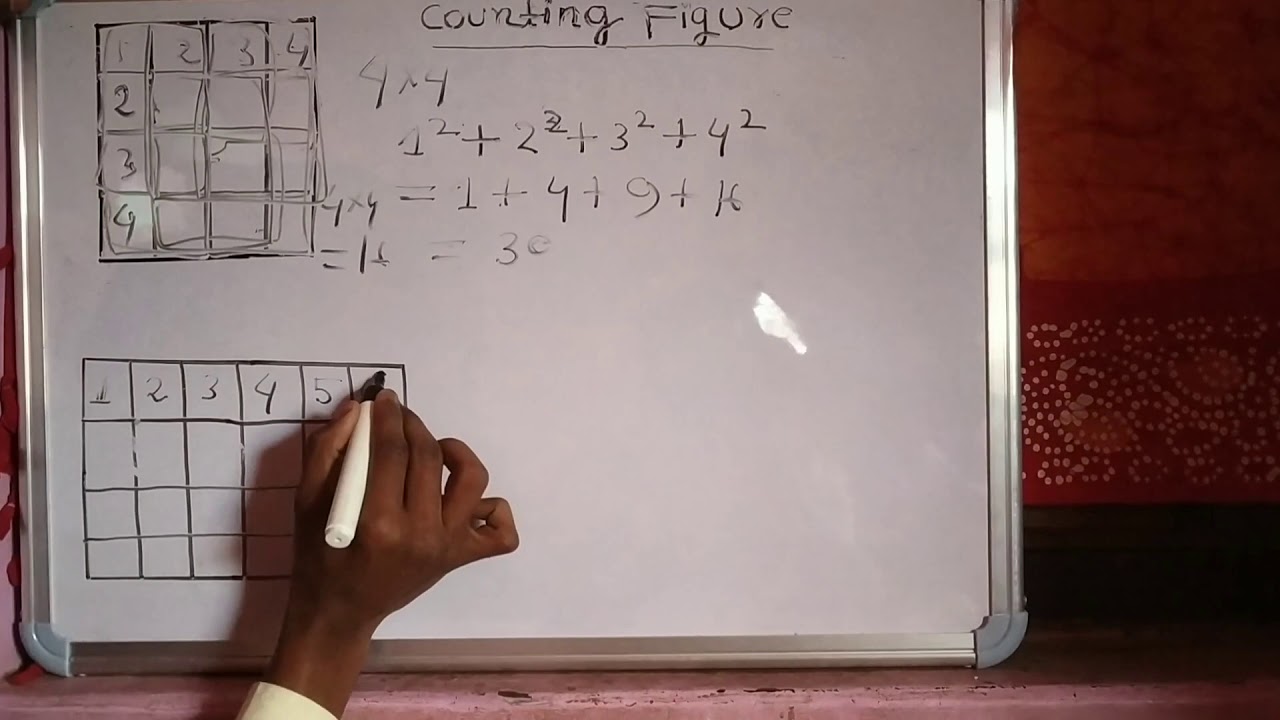 Counting Figure
1 2 3 4
2
3
4
4×4
1² + 2² + 3² + 4²
= 1 + 4 + 9 + 16
4×4
= 16
= 30
1 2 3 4 5